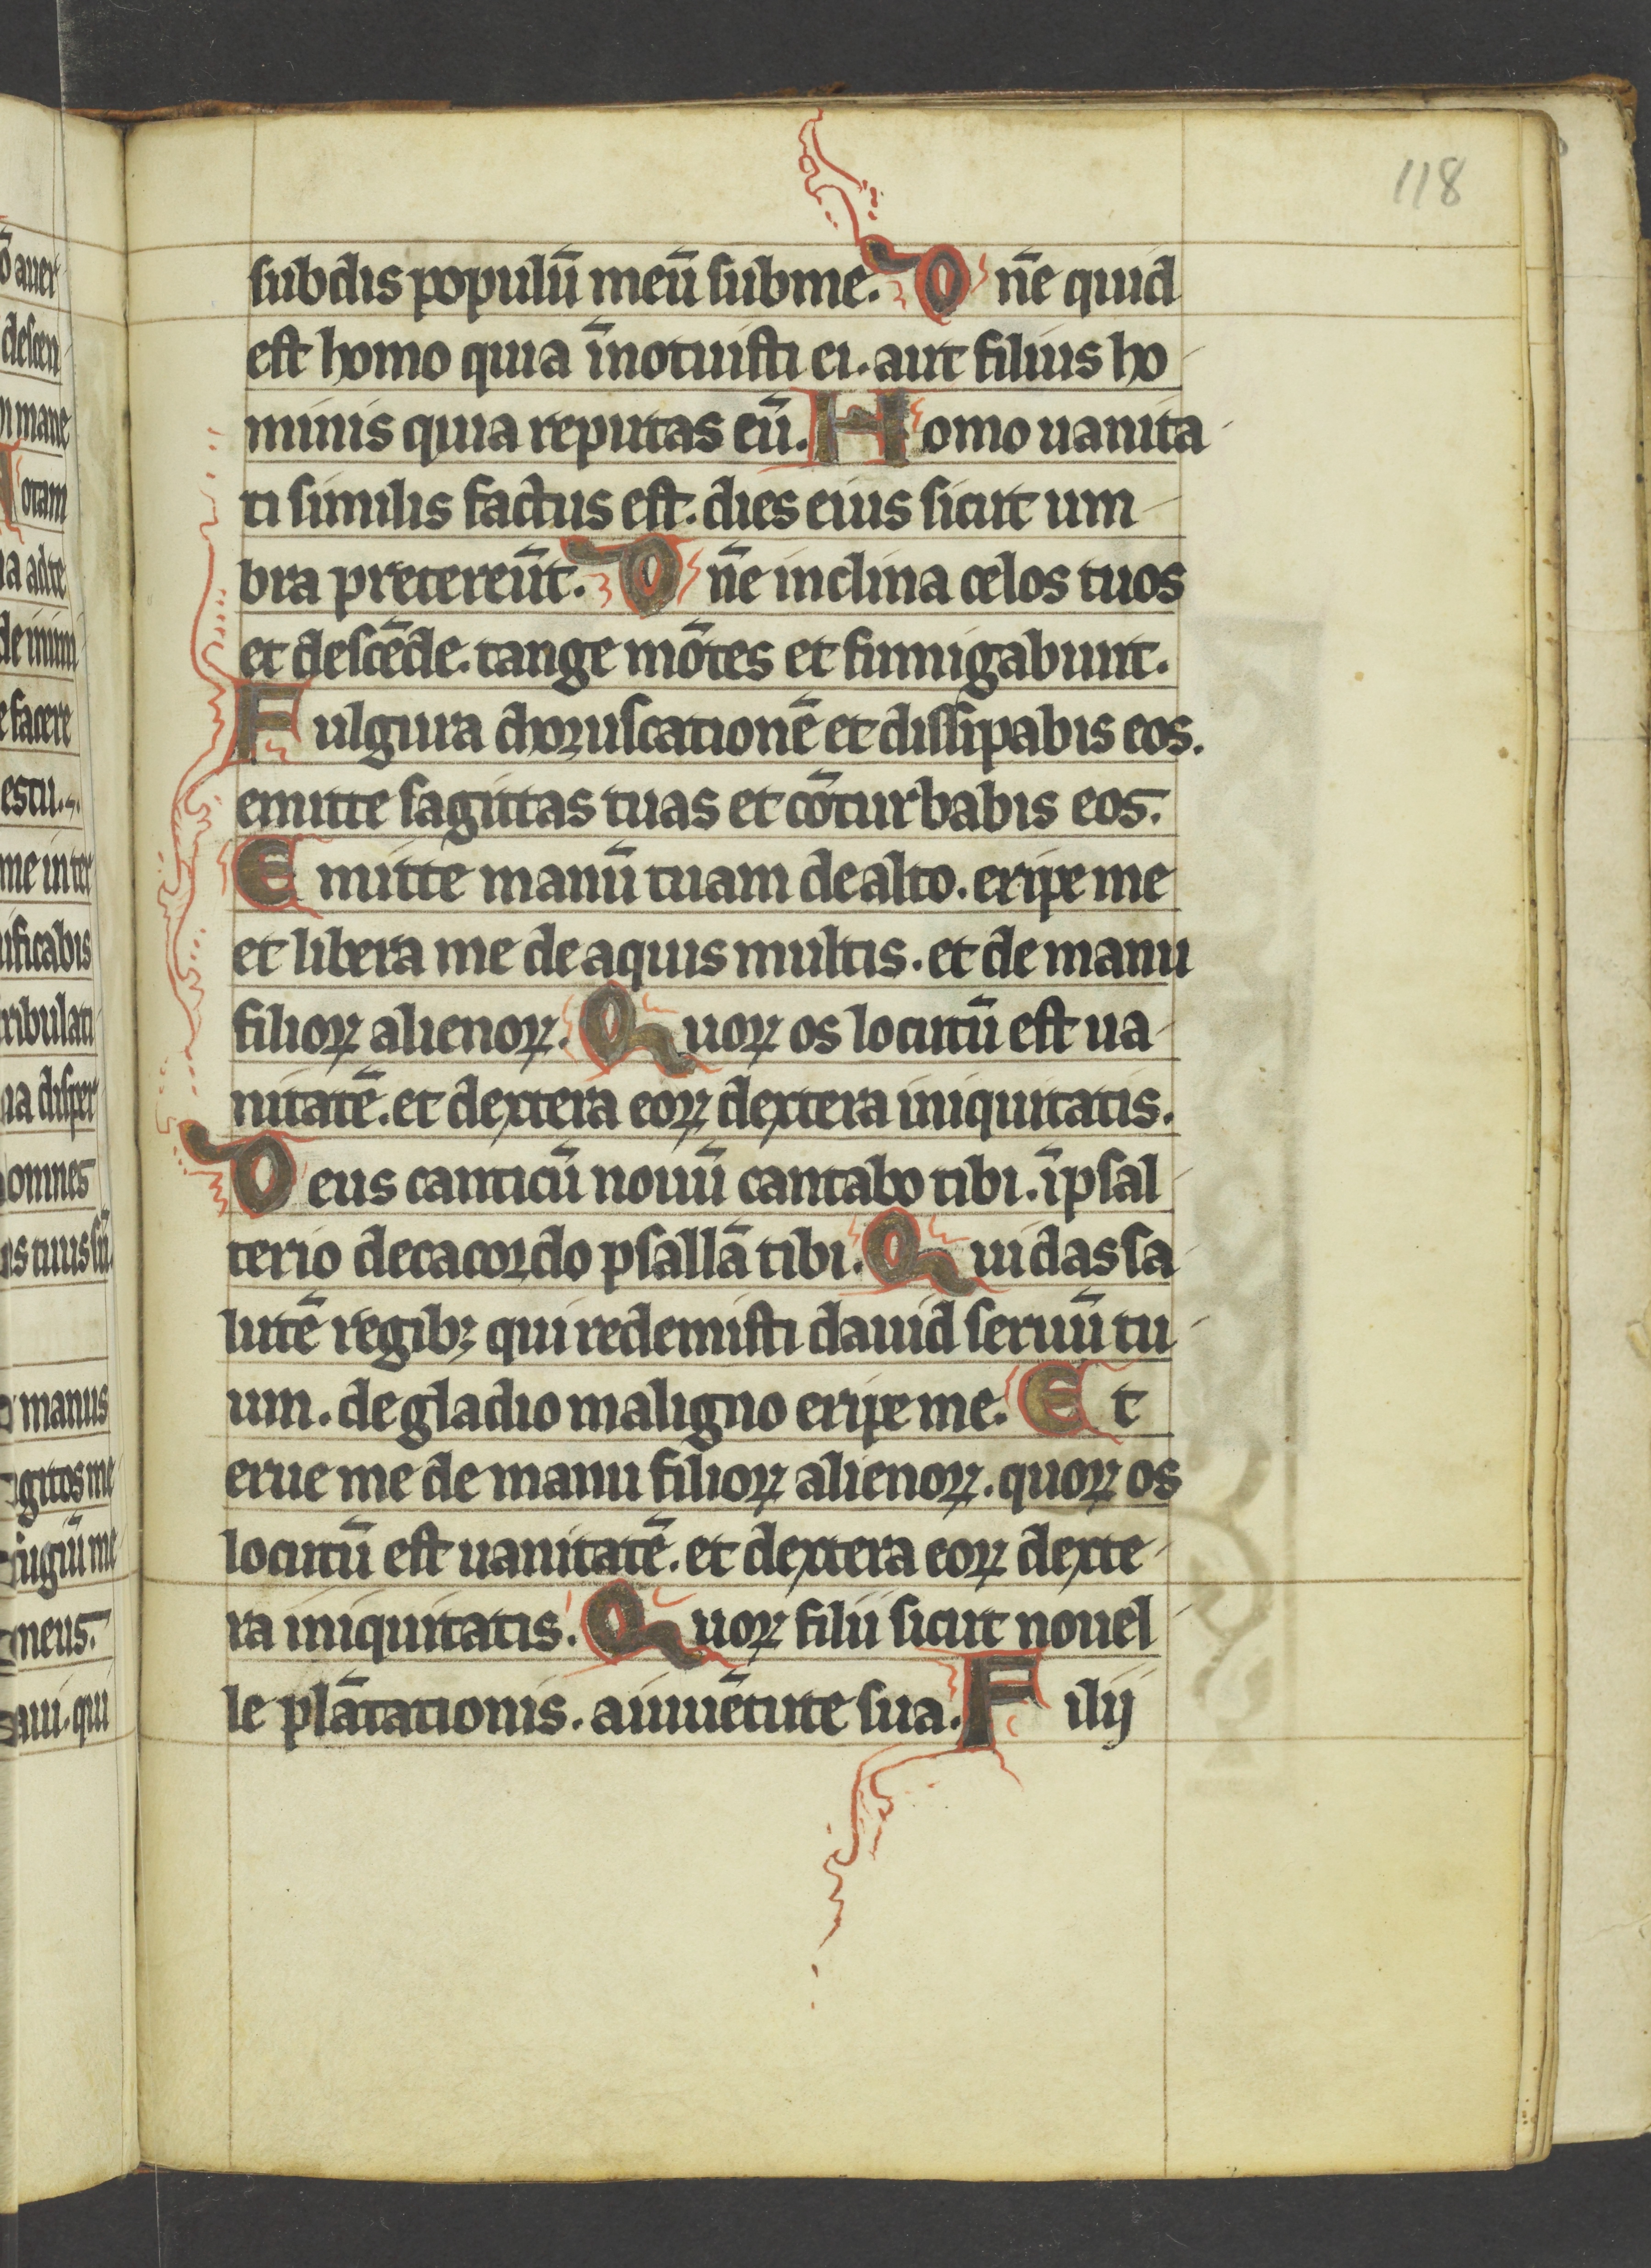 118
subdis populū meū sub me. Dn̄e quid
est homo quia īnotuisti ei. aut filius ho
minis quia reputas eū. Homo uanita
ti similis factus est. dies eius sicut um
bra pretereūt. Dn̄e inclina celos tuos
et descēde. tange mōtes et fumigabunt.
Fulgura choruscationē et dissipabis eos.
emitte sagittas tuas et cōturbabis eos.
Emitte manū tuam de alto. eripe me
et libera me de aquis multis. et de manu
filioꝝ alienoꝝ. Quoꝝ os locutū est ua
nitatē. et dextera eoꝝ dextera iniquitatis.
Deus canticū nouū cantabo tibi. ī psal
terio decacordo psallā tibi. Qui das sa
lutē regibꝫ qui redemisti dauid seruū tu
um. de gladio maligno eripe me. Et
erue me de manu filioꝝ alienoꝝ. quoꝝ os
locutū est uanitatē. et dextera eoꝝ dexte
ra iniquitatis. Quoꝝ filii sicut nouel
le plātationis. a iuuētute sua. Filij